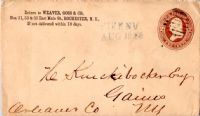 Return to WEAVER, GOSS & CO.
Nos. 31, 33 & 35 East Main St., ROCHESTER, N. Y.
If not delivered within 10 days.
AUG
Knickerbocker Esq
Gaines
Orleans Co
NY